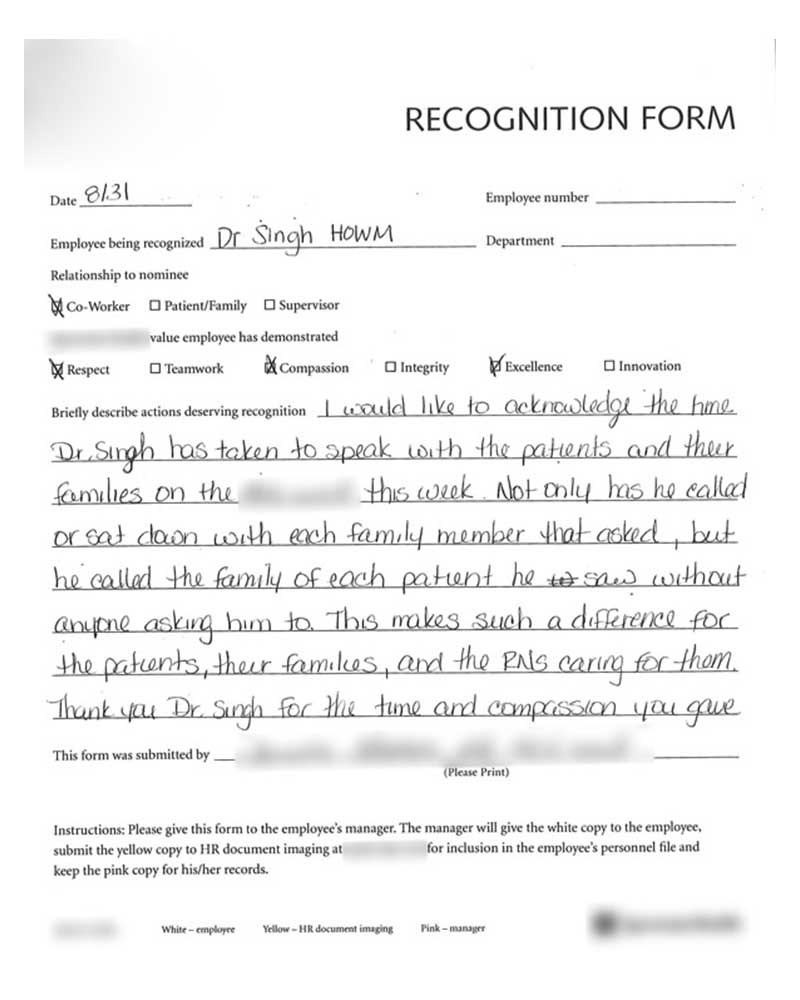 RECOGNITION FORM
Date 8/31 Employee number
Employee being recognized Dr Singh HOWM Department
Relationship to nominee
Co-Worker Patient/Family Supervisor
value employee has demonstrated
Respect Teamwork Compassion Integrity Excellence Innovation
Briefly describe actions deserving recognition I would like to acknowledge the time
Dr. Singh has taken to speak with the patients and their
families on the this week. Not only has he called
or sat down with each family member that asked, but
he called the family of each patient he saw without
anyone asking him to. This makes such a difference for
the patients, their families, and the RNs caring for them.
Thank you Dr. Singh for the time and compassion you gave
This form was submitted by
(Please Print)
Instructions: Please give this form to the employee's manager. The manager will give the white copy to the employee,
submit the yellow copy to HR document imaging at for inclusion in the employee's personnel file and
keep the pink copy for his/her records.
White – employee Yellow – HR document imaging Pink – manager